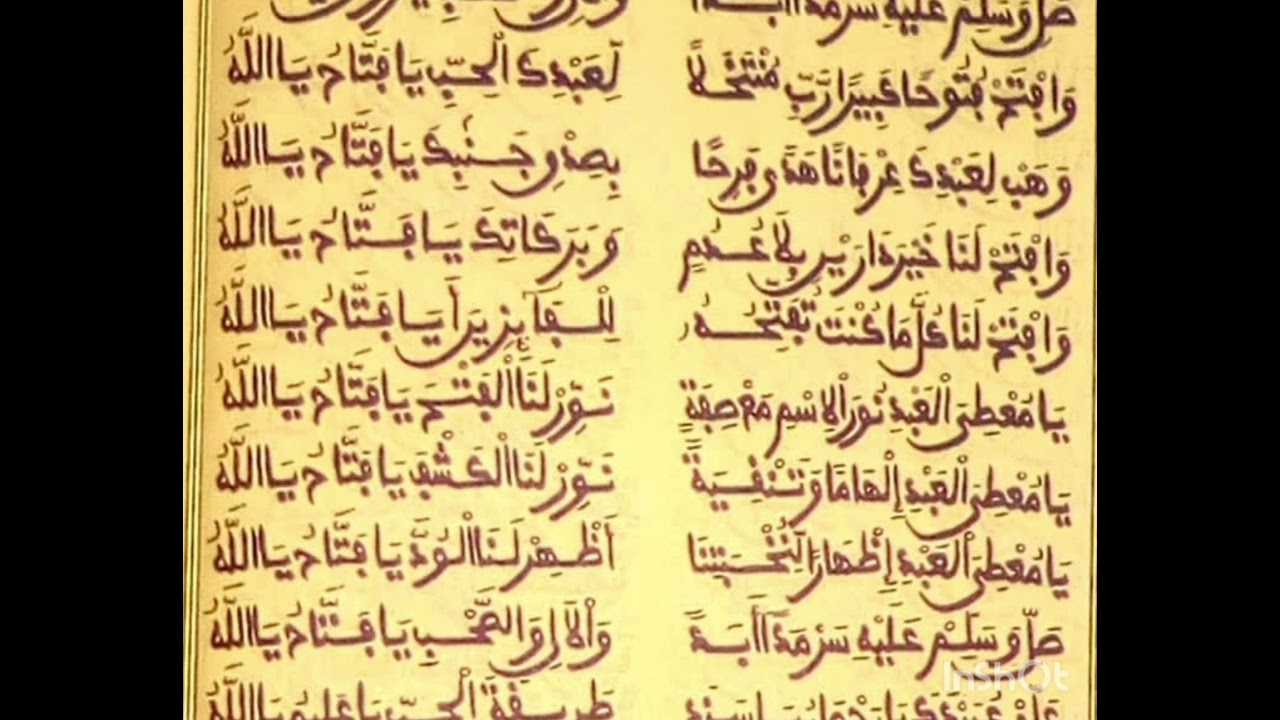 صَلِّ وَسَلِّمْ عَلَيْهِ سَرْمَدًا أَبَدًا
وَافْتَحْ فُتُوحًا كَبِيرًا رَّبِّ مُنْتَخَلًا لِعَبْدِكَ الْحِبِّ يَا فَتَّاحُ يَا اللَّهُ
وَهَبْ لِعَبْدِكَ عِرْفَانًا هَدَى فَرِحًا بِصِدْقِ يَا فَتَّاحُ يَا اللَّهُ
وَافْتَحْ لَنَا خَيْرَ دَارَيْنِ بِلَا عُدُمٍ وَبَرَكَاتِكَ يَا فَتَّاحُ يَا اللَّهُ
وَافْتَحْ لَنَا كُلَّ مَا كُنْتَ تُفَتِّحُهُ لِلْفَائِزِينَ أَيَا فَتَّاحُ يَا اللَّهُ
يَا مُعْطِيَ الْعَبْدِ نُورَ الِاسْمِ مَعْ صِفَةٍ نَوِّرْ لَنَا الْفَتْحَ يَا فَتَّاحُ يَا اللَّهُ
يَا مُعْطِيَ الْعَبْدِ إِلْهَامًا وَتَنْقِيَةً نَوِّرْ لَنَا الْكَشْفَ يَا فَتَّاحُ يَا اللَّهُ
يَا مُعْطِيَ الْعَبْدِ إِظْهَارًا لِنُخْبَتِنَا أَظْهِرْ لَنَا الْوُدَّ يَا فَتَّاحُ يَا اللَّهُ
صَلِّ وَسَلِّمْ عَلَيْهِ سَرْمَدًا أَبَدًا وَالْآلِ وَالصَّحْبِ يَا فَتَّاحُ يَا اللَّهُ
طَرِيقَةَ الْحِبِّ يَا عَلِيمُ يَا اللَّهُ
InShOt